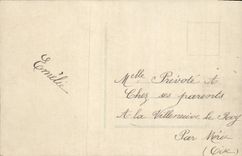 Emélie
Melle Prévoté A
Chez ses parents
A la Villeneuve le Roy
Par Méru
(Oise)